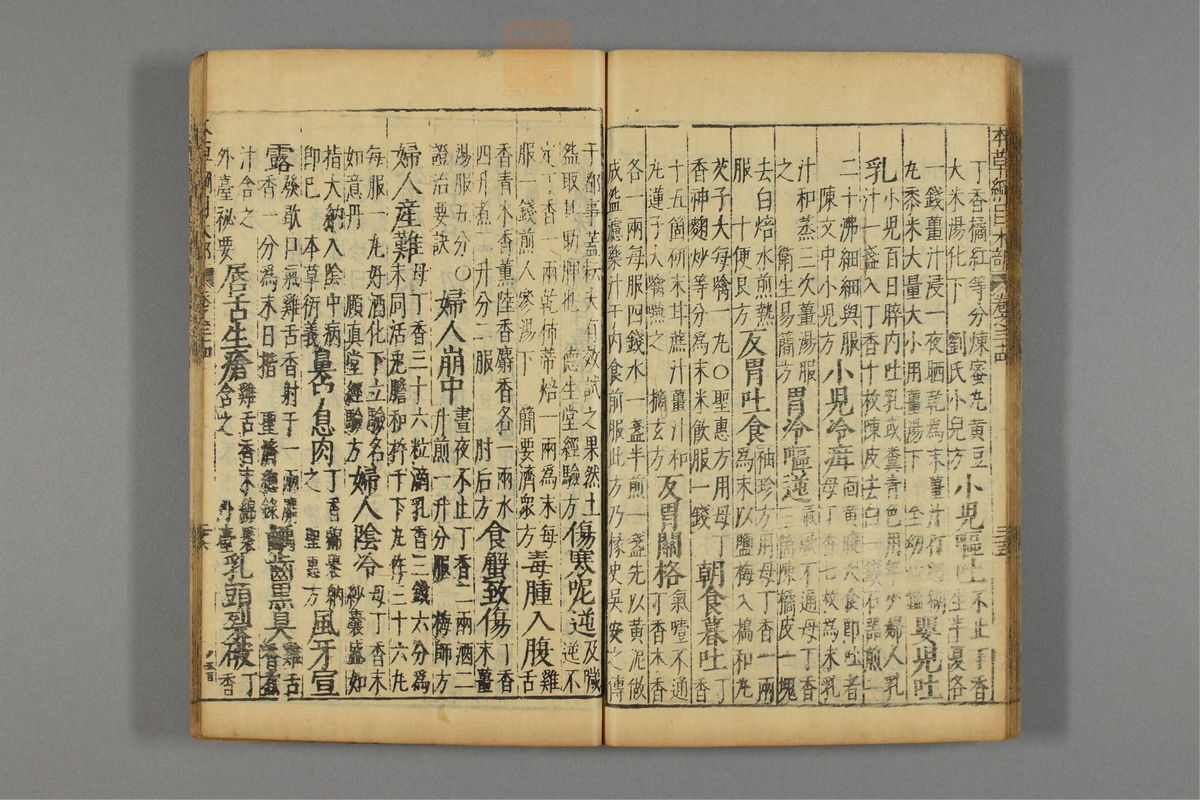 本草綱目木部 卷之三十四
丁香橘紅等分煉蜜丸黃豆 小兒嘔吐不止丁香
大米湯化下 劉氏小兒方 生半夏各
一錢薑汁浸一夜晒乾為末薑汁打
丸黍米大量大小用薑湯下 嬰兒吐
乳小兒百日晬內吐乳或糞青色用年少婦人乳
汁一盞入丁香十枚陳皮去白一錢石器煎二
二十沸細細與服 小兒冷疳面黃腹大食即吐者
陳文中小兒方 母丁香七枚為末乳
汁和蒸三次薑湯服 胃冷嘔逆氣厥不通母丁香
之 衛生易簡方 三箇陳橘皮一塊
去白焙水煎熱 反胃吐食袖珍方用母丁香一兩
服 十便良方 為末以鹽梅入搗和丸
芡子大每噙一丸〇聖惠方用母丁 朝食暮吐丁香
香神麴炒等分為末米飲服一錢
十五箇研末甘蔗汁薑汁和 反胃關格氣噎不通
丸蓮子大噙嚥之 摘玄方 丁香木香
各一兩每服四錢水一盞半煎一盞先以黃泥做
成盌濾藥汁于內食前服此方乃掾史吳安之傳
于都事蓋耘夫有效試之果然土 傷寒呃逆及噦逆不
盌取其助脾也 德生堂經驗方
定丁香一兩乾柿蒂焙一兩為末每
服一錢煎人參湯下 簡要濟衆方 毒腫入腹雞舌
香青木香薰陸香麝香各一兩水
四升煮二升分二服 肘后方 食蟹致傷丁香末薑
湯服五分〇 婦人崩中晝夜不止丁香二兩酒二
證治要訣 升煎一升分服 梅師方
婦人產難母丁香三十六粒滴乳香三錢六分為
末同活兎膽和杵千下丸作三十六丸
每服一丸好酒化下立驗名
如意丹 頤真堂經驗方 婦人陰冷母丁香末
紗囊盛如
指大納入陰中病
即已 本草衍義 鼻中息肉丁香綿裹納
之 聖惠方 風牙宣
露發歇口氣雞舌香射干一兩麝
香一分為末日揩 聖濟總錄 齲齒黑臭雞舌
香煮
汁含之
外臺祕要 唇舌生瘡雞舌香末綿裹
含之 外臺 乳頭裂破丁
香